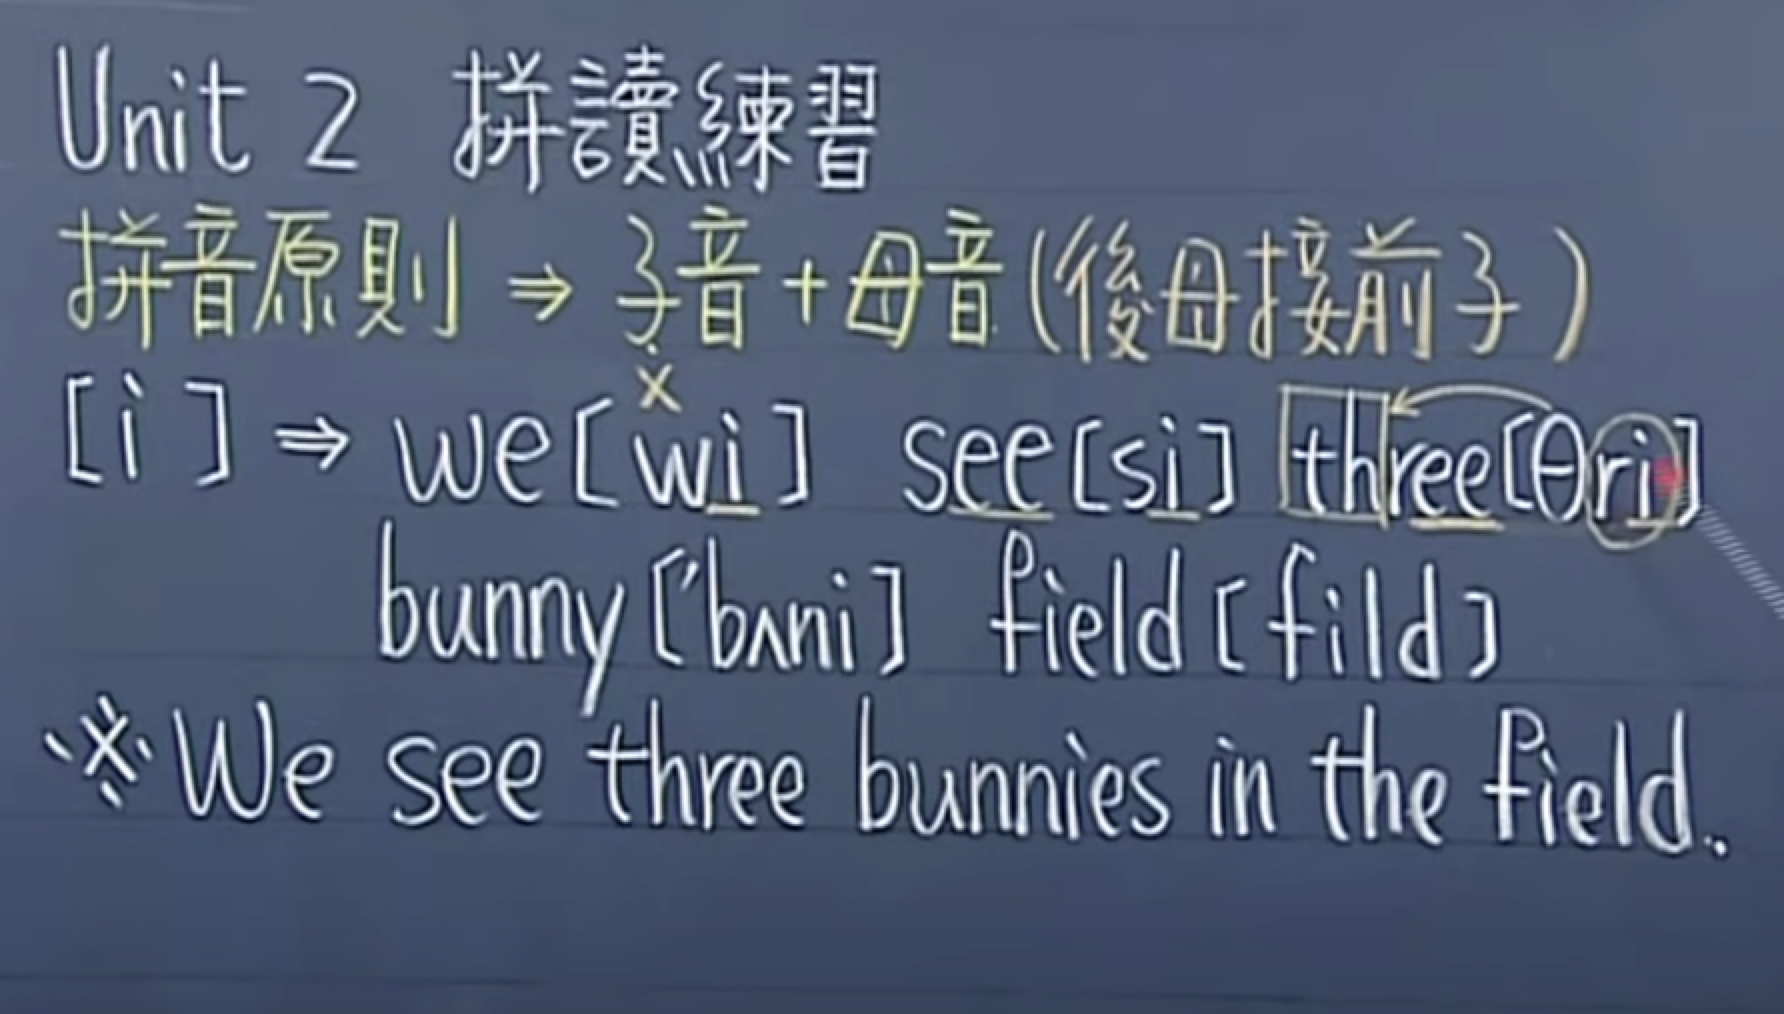 Unit 2 拼讀練習
拼音原則 ⇒ 子音+母音(後母接前子)
x
[i] ⇒ we[wi] see[si] three[θri]
bunny['bʌni] field[fild]
※We see three bunnies in the field.